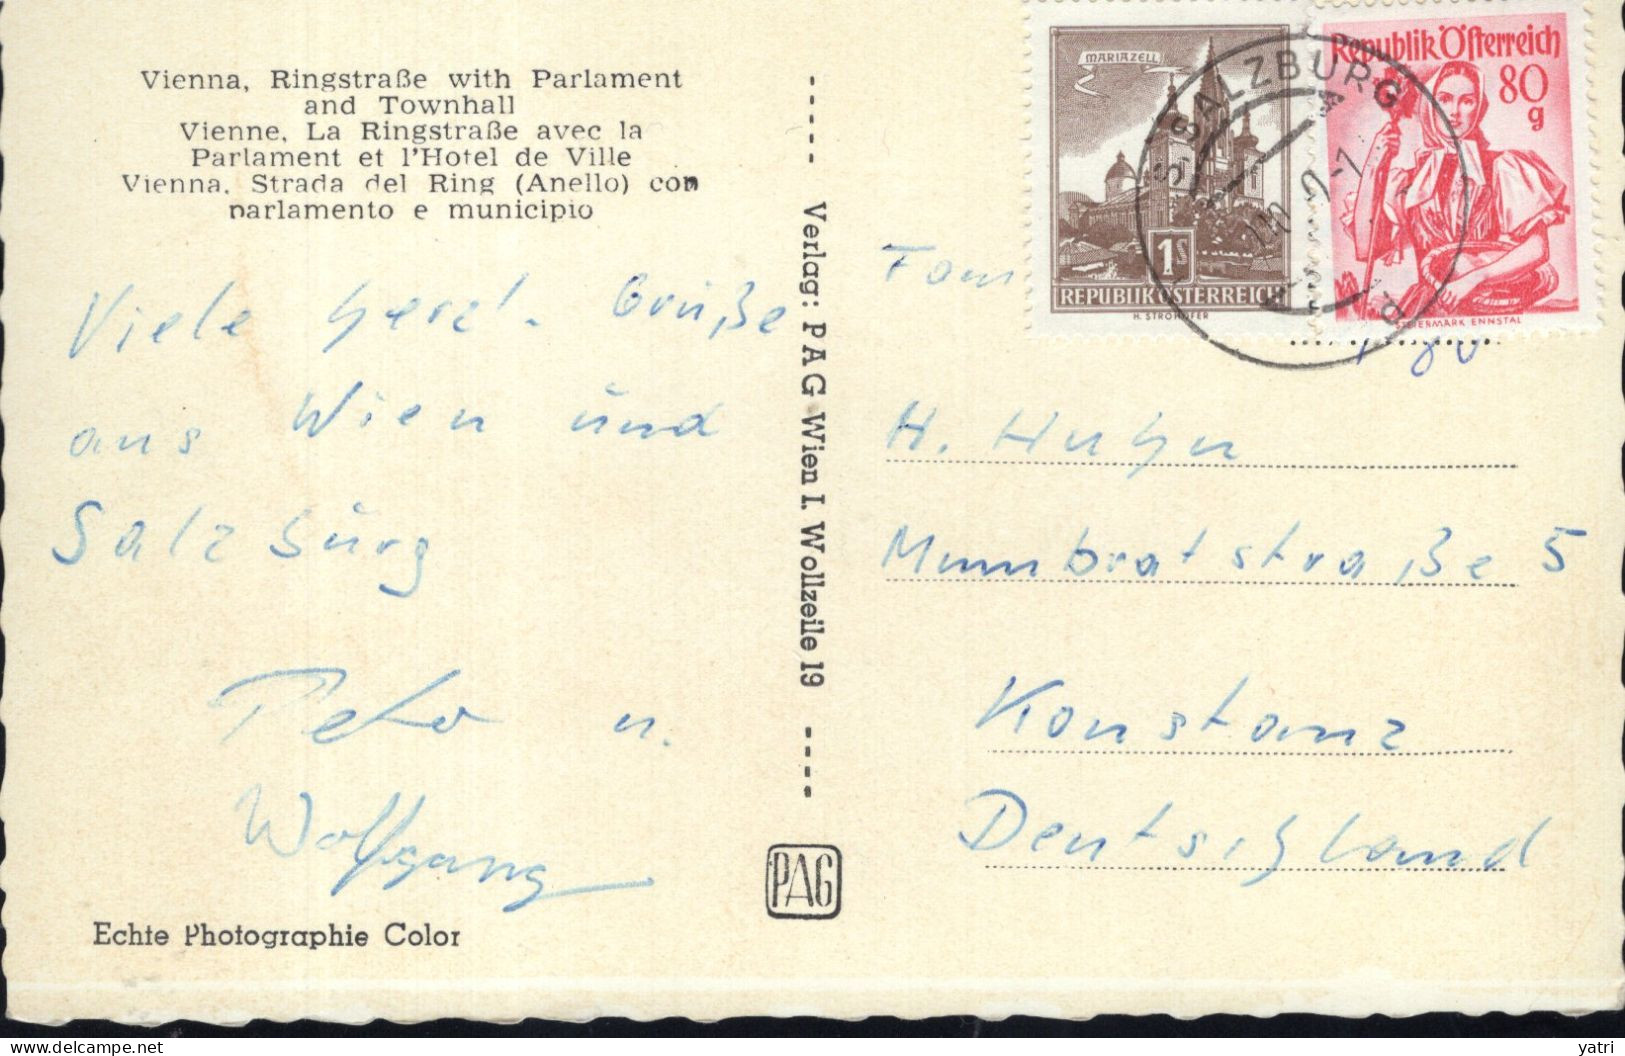 Vienna, Ringstraße with Parlament
and Townhall
Vienne, La Ringstraße avec la
Parlament et l'Hotel de Ville
Vienna, Strada del Ring (Anello) con
parlamento e municipio
Viele herzl. Grüße
aus Wien und
Salzburg
Peter u.
Wolfgang
Echte Photographie Color
Verlag: PAG Wien I. Wollzeile 19
PAG
MARIAZELL
1S
REPUBLIK ÖSTERREICH
H. STROHOFER
Republik Österreich
80
g
STEIERMARK ENNSTAL
SALZBURG
Fam
H. Huhn
Mumbratstraße 5
Konstanz
Deutschland
yatri